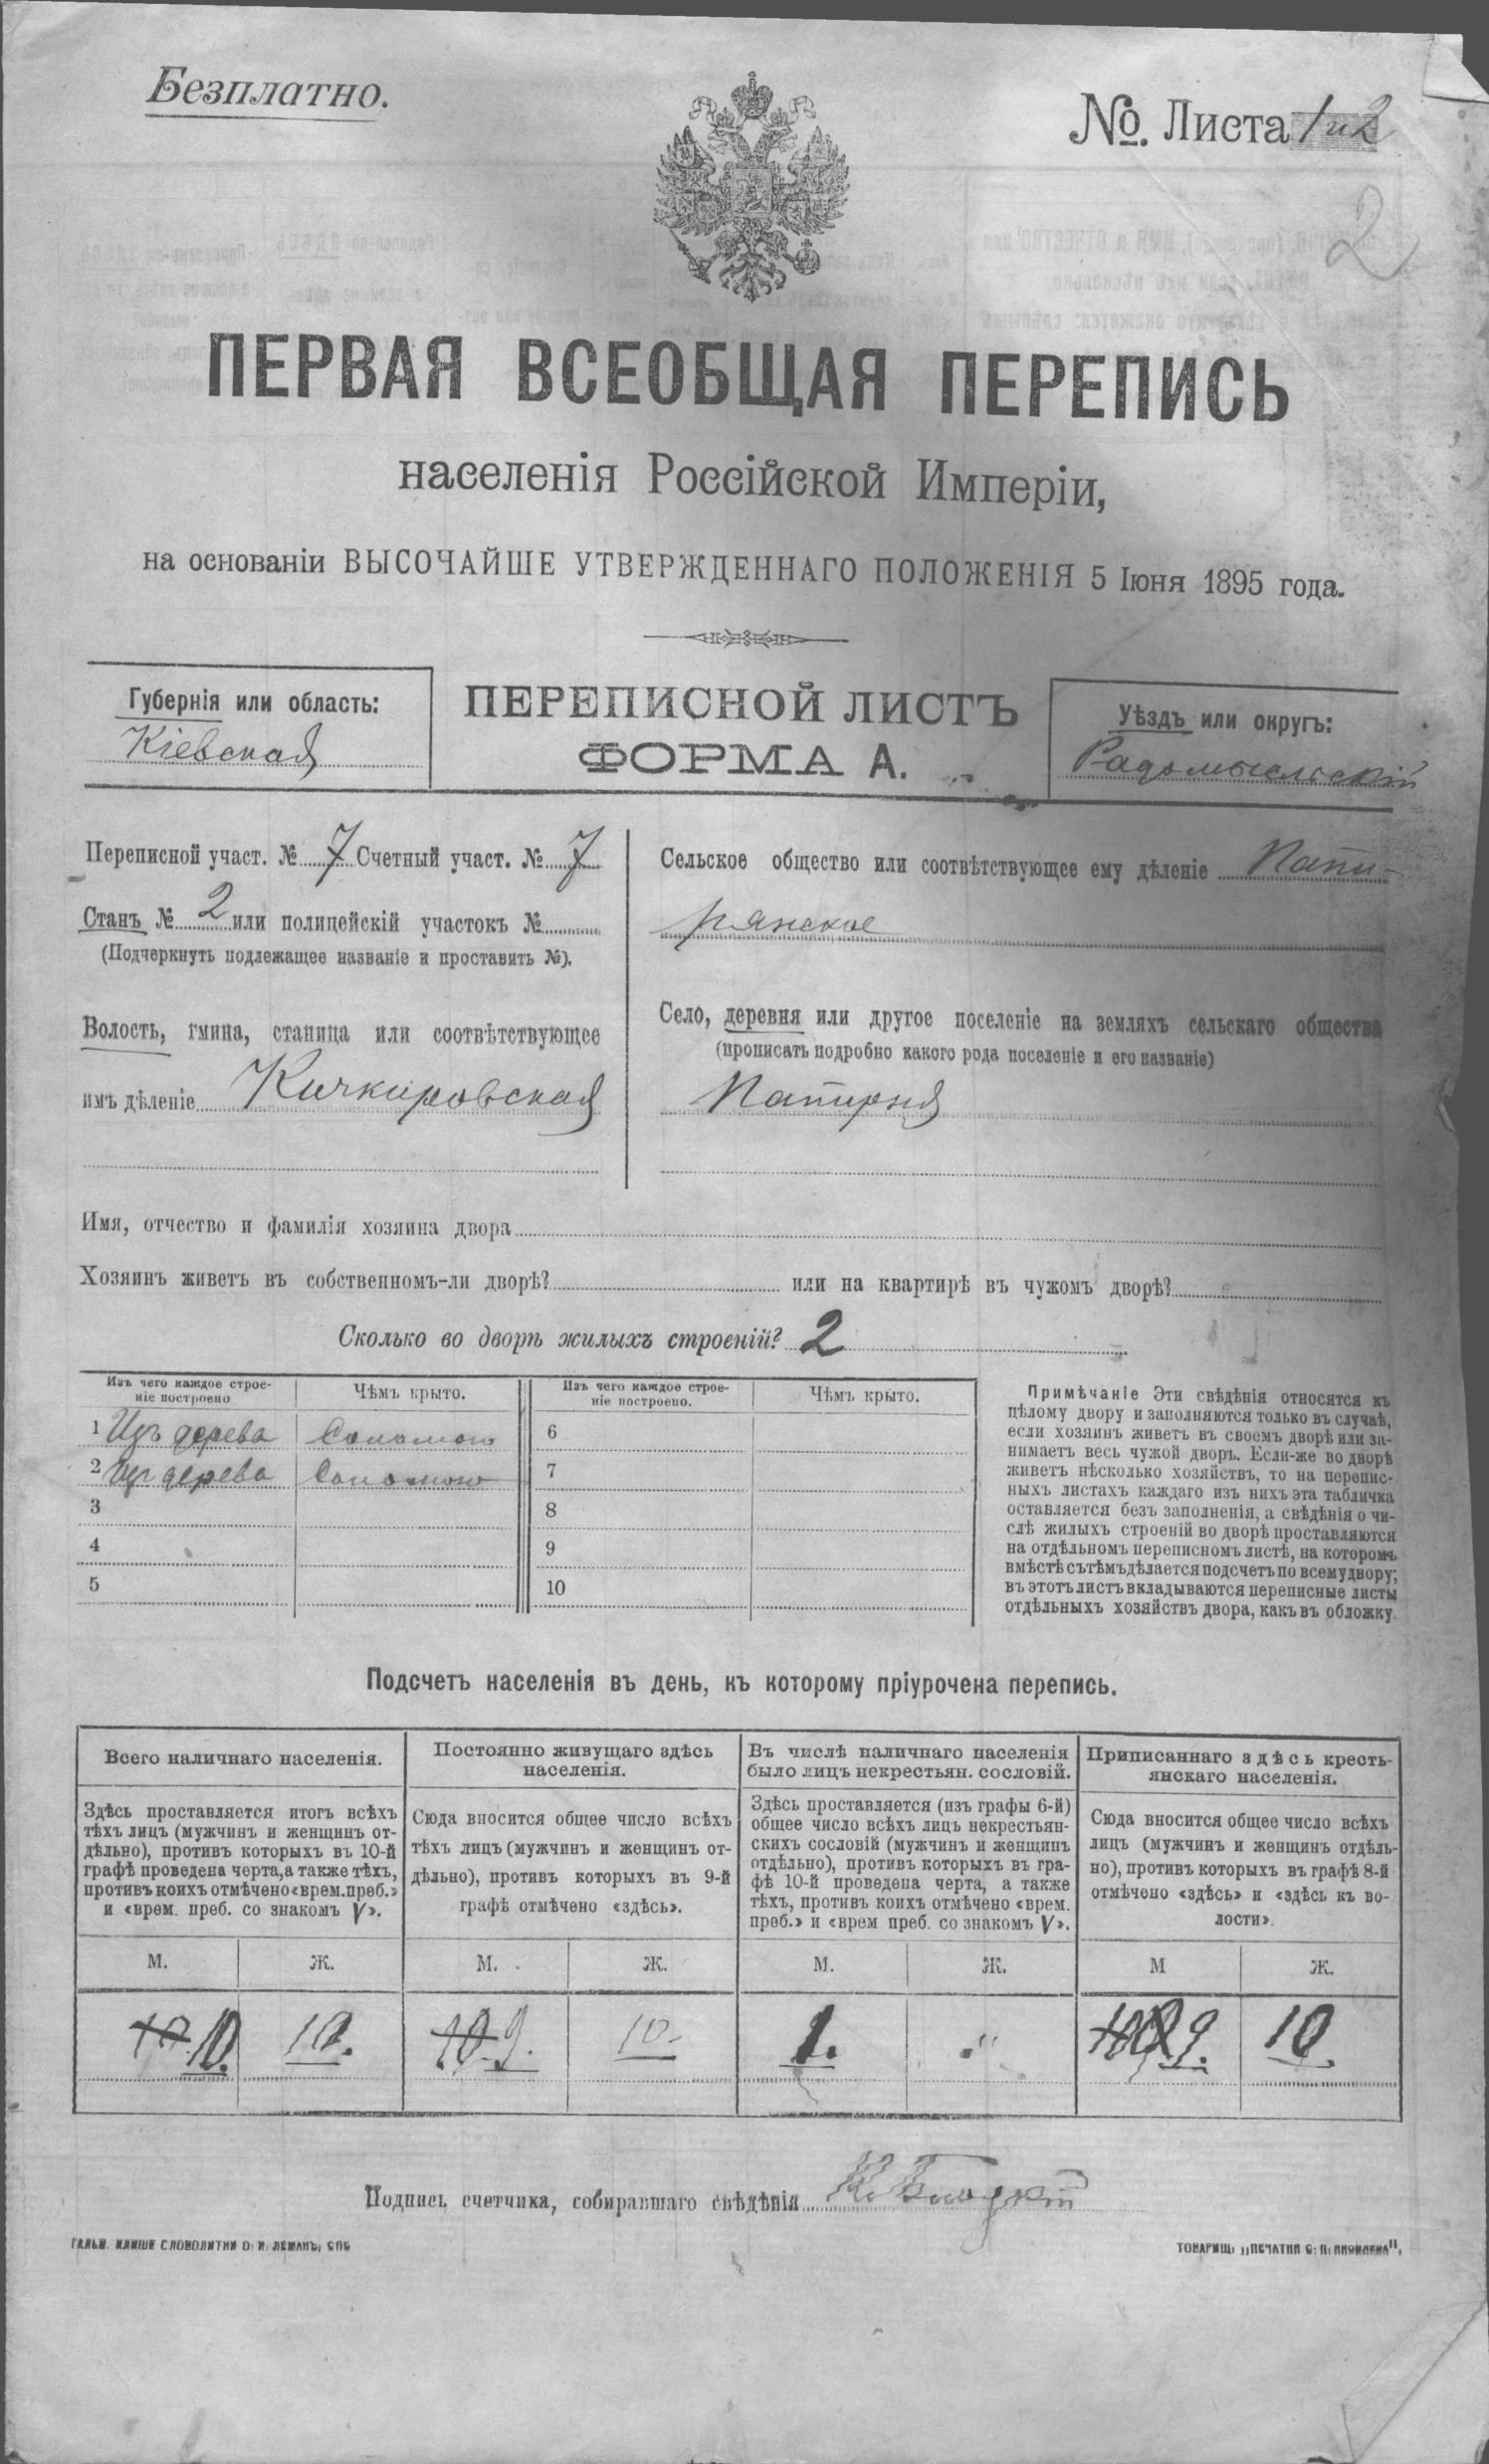 Безплатно.
№. Листа 1 и 2
2
ПЕРВАЯ ВСЕОБЩАЯ ПЕРЕПИСЬ
населенія Россійской Имперіи,
на основаніи ВЫСОЧАЙШЕ УТВЕРЖДЕННАГО ПОЛОЖЕНІЯ 5 Іюня 1895 года.
Губернія или область:
Кіевская
ПЕРЕПИСНОЙ ЛИСТЪ
ФОРМА А.
Уѣздъ или округъ:
Радомысльскій
Переписной участ. № 7 Счетный участ. № 7
Станъ № 2 или полицейскій участокъ №
(Подчеркнуть подлежащее названіе и проставить №).
Волость, гмина, станица или соотвѣтствующее
имъ дѣленіе Кичкировская
Сельское общество или соотвѣтствующее ему дѣленіе Папи-
рнянское
Село, деревня или другое поселеніе на земляхъ сельскаго общества
(прописать подробно какого рода поселеніе и его названіе)
Папирня
Имя, отчество и фамилія хозяина двора
Хозяинъ живетъ въ собственномъ-ли дворѣ? или на квартирѣ въ чужомъ дворѣ?
Сколько во дворѣ жилыхъ строеній? 2
Изъ чего каждое строе-
ніе построено
Чѣмъ крыто.
Изъ чего каждое строе-
ніе построено.
Чѣмъ крыто.
1 Изъ дерева Соломою
2 Изъ дерева Соломою
3
4
5
6
7
8
9
10
Примѣчаніе Эти свѣдѣнія относятся къ
цѣлому двору и заполняются только въ случаѣ,
если хозяинъ живетъ въ своемъ дворѣ или за-
нимаетъ весь чужой дворъ. Если-же во дворѣ
живетъ нѣсколько хозяйствъ, то на перепис-
ныхъ листахъ каждаго изъ нихъ эта табличка
оставляется безъ заполненія, а свѣдѣнія о чи-
слѣ жилыхъ строеній во дворѣ проставляются
на отдѣльномъ переписномъ листѣ, на которомъ
вмѣстѣ съ тѣмъ дѣлается подсчетъ по всему двору;
въ этотъ листъ вкладываются переписные листы
отдѣльныхъ хозяйствъ двора, какъ въ обложку.
Подсчетъ населенія въ день, къ которому пріурочена перепись.
Всего наличнаго населенія.
Здѣсь проставляется итогъ всѣхъ
тѣхъ лицъ (мужчинъ и женщинъ от-
дѣльно), противъ которыхъ въ 10-й
графѣ проведена черта, а также тѣхъ,
противъ коихъ отмѣчено «врем. преб.»
и «врем. преб. со знакомъ V».
Постоянно живущаго здѣсь
населенія.
Сюда вносится общее число всѣхъ
тѣхъ лицъ (мужчинъ и женщинъ от-
дѣльно), противъ которыхъ въ 9-й
графѣ отмѣчено «здѣсь».
Въ числѣ наличнаго населенія
было лицъ некрестьян. сословій.
Здѣсь проставляется (изъ графы 6-й)
общее число всѣхъ лицъ некрестьян-
скихъ сословій (мужчинъ и женщинъ
отдѣльно), противъ которыхъ въ гра-
фѣ 10-й проведена черта, а также
тѣхъ, противъ коихъ отмѣчено «врем.
преб.» и «врем преб. со знакомъ V».
Приписаннаго здѣсь кресть-
янскаго населенія.
Сюда вносится общее число всѣхъ
лицъ (мужчинъ и женщинъ отдѣль-
но), противъ которыхъ въ графѣ 8-й
отмѣчено «здѣсь» и «здѣсь къ во-
лости».
М. Ж. М. Ж. М. Ж. М Ж.
10. 10. 10. 10. 9. 10. 1. " 10 9. 10
Подпись счетчика, собиравшаго свѣдѣнія
ГАЛЬВ. КЛИШЕ СЛОВОЛИТНИ О. И. ЛЕМАНЪ, СПБ
ТОВАРИЩ. „ПЕЧАТНЯ С. П. ЯКОВЛЕВА",